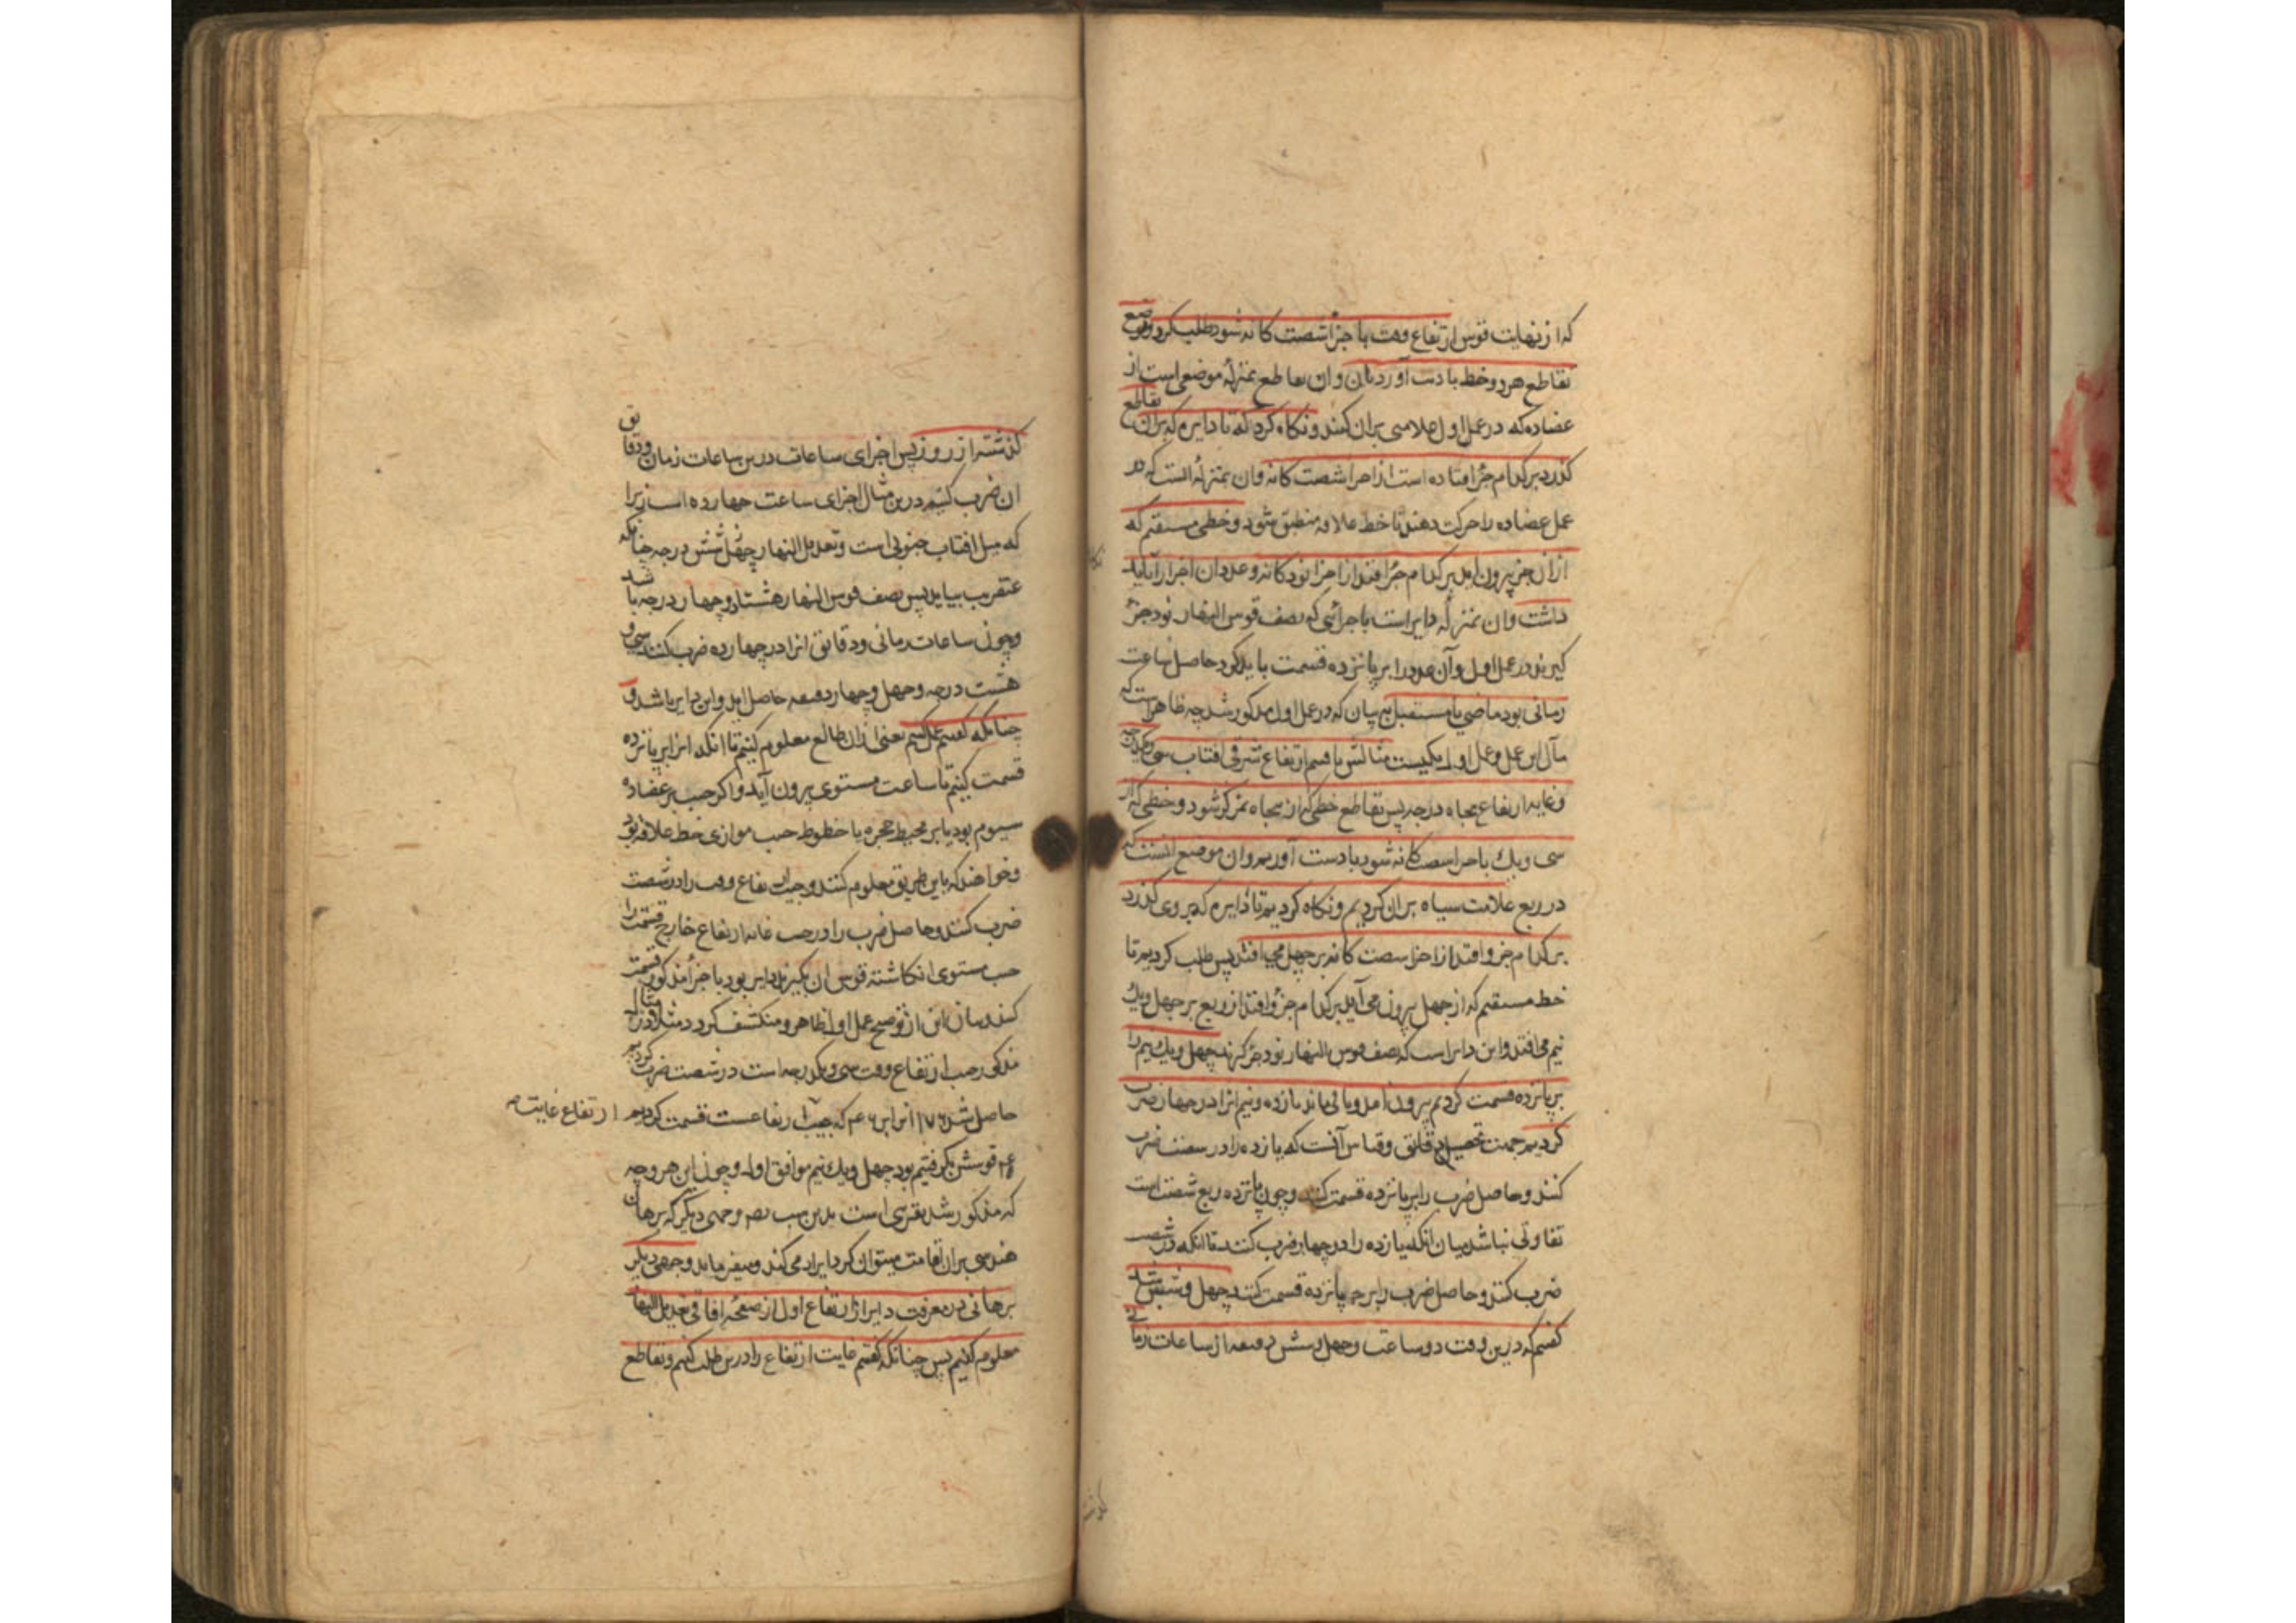 که از نهایت قوس ارتفاع وقت با جزا شصت کانه شود طلب کرد و موضع
تقاطع هر دو خط با دست آورد بان و ان تقاطع بمنزلهٔ موضعی است از
عضاده که در عمل اول علامتی بران کنند و نکاه کرد که تا دایره که بران تقاطع
کذرد بر کدام جزٔ افتاده است از اجزا شصت کانه و ان بمنزلهٔ انست که در
عمل عضاده را حرکت دهند تا خط علاقه منطبق شود و خطی مستقیم که
ازان جزٔ بیرون اید بر کدام جزٔ افتد از اجزا نود کانه و عدد ان اجزا را باید
داشت و ان بمنزلهٔ دایر است باجزائی که نصف قوس النهار نود جزٔ
کیرند در عمل اول و آن عدد را بر پانزده قسمت باید کرد حاصل ساعت
زمانی بود ماضی یا مستقبل به بیان که در عمل اول مذکور شد چه ظاهر است که
مآل این عمل و عمل اول یکیست مثالش یافتیم ارتفاع شرقی افتاب سی و یک درجه
و غایه ارتفاع پنجاه درجه پس تقاطع خطی که از پنجاه بمرکز شود و خطی که از
سی و یک با جزا شصت کانه شود با دست آوردیم و ان موضع انست که
در ربع علامت سیاه بران کردیم و نکاه کردیم تا دایره که بروی کذرد
بر کدام جزو افتد از اجزا شصت کانه بر چهل می افتد پس طلب کردیم تا
خط مستقیم که از چهل بیرون می آید بر کدام جزؤ افتد از ربع بر چهل و یک
نیم می افتد و این دایر است که نصف قوس النهار نود جزٔ کیرند چهل و یک نیم را
بر پانزده قسمت کردیم بیرون آمد و باقی ماند یازده و نیم انرا در چهار ضرب
کردیم جهت تحصیل دقایق و قیاس آنست که یازده را در شصت ضرب
کنند و حاصل ضرب را بر پانزده قسمت کنند و چون پانزده ربع شصت است
تفاوتی نباشد میان انکه یازده را در چهار ضرب کنند تا انکه در شصت
ضرب کنند و حاصل ضرب را بر پانزده قسمت کنند چهل و شش شد
کفتیم که درین وقت دو ساعت و چهل و شش دقیقه از ساعات زمانی
کذشته از روز پس اجزای ساعات درین ساعات زمان و دقایق
ان ضرب کنیم درین مثال اجزای ساعت چهارده است زیرا
که میل افتاب جنوبی است و تعدیل النهار شش درجه چنانکه
عنقریب بیاید پس نصف قوس النهار هشتاد و چهار درجه باشد
و چون ساعات زمانی و دقایق انرا در چهارده ضرب کنند سی و
هشت درجه و چهل و چهار دقیقه حاصل اید و این دایر باشد و
چنانکه کفتیم عمل کنیم یعنی ازان طالع معلوم کنیم تا انکه انرا بر پانزده
قسمت کنیم تا ساعت مستوی بیرون آید و اکر جیب بر عضاده
مرسوم بود یا بر محیط حجره یا خطوط جیب موازی خط علاقه بود
و خواهند که باین طریق معلوم کنند و جیب ارتفاع وقت را در شصت
ضرب کنند و حاصل ضرب را بر جیب غایه ارتفاع خارج قسمت را
جیب مستوی انکاشته قوس ان بکیرند دایر بود با جزأ مذکور قسمت
کنند بیان این از توضیح عمل اول ظاهر و منکشف کردد مثلا در مثال
مذکور جیب ارتفاع وقت سی و یک درجه است در شصت ضرب کردیم
حاصل شد ۱۷۶ انرا بر ۴۶ که جیب ارتفاعست قسمت کردیم ارتفاع غایت
۴۰ قوسش بکرفتیم بود چهل و یک نیم موافق اول و چون این هر دو وجه
که مذکور شد تقریبی است بدین سبب وجهی دیکر که برهان
هندسی بران اقامت میتوان کرد ایراد می کند و میفرماید وجهی دیکر
برهانی در معرفت دایر از ارتفاع اول از صفحهٔ افاقی تعدیل النهار
معلوم کنیم پس چنانکه کفتیم غایت ارتفاع را در ربع طلب کنیم و تقاطع